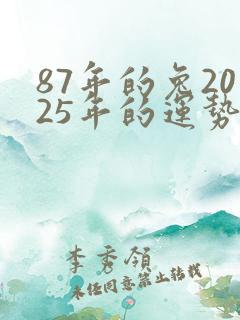 87年的兔20
25年的運勢
李秀領
未任同意禁止转载